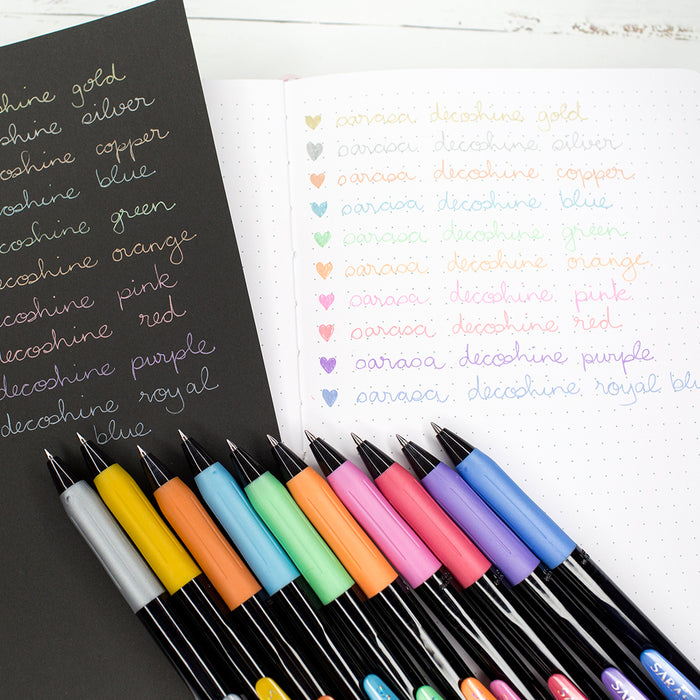 shine gold
shine silver
coshine copper
coshine blue
coshine green
decoshine orange
decoshine pink
decoshine red
decoshine purple
decoshine royal
blue
sarasa decoshine gold
sarasa decoshine silver
sarasa decoshine copper
sarasa decoshine blue
sarasa decoshine green
sarasa decoshine orange
sarasa decoshine pink
sarasa decoshine red
sarasa decoshine purple
sarasa decoshine royal blu
SARA